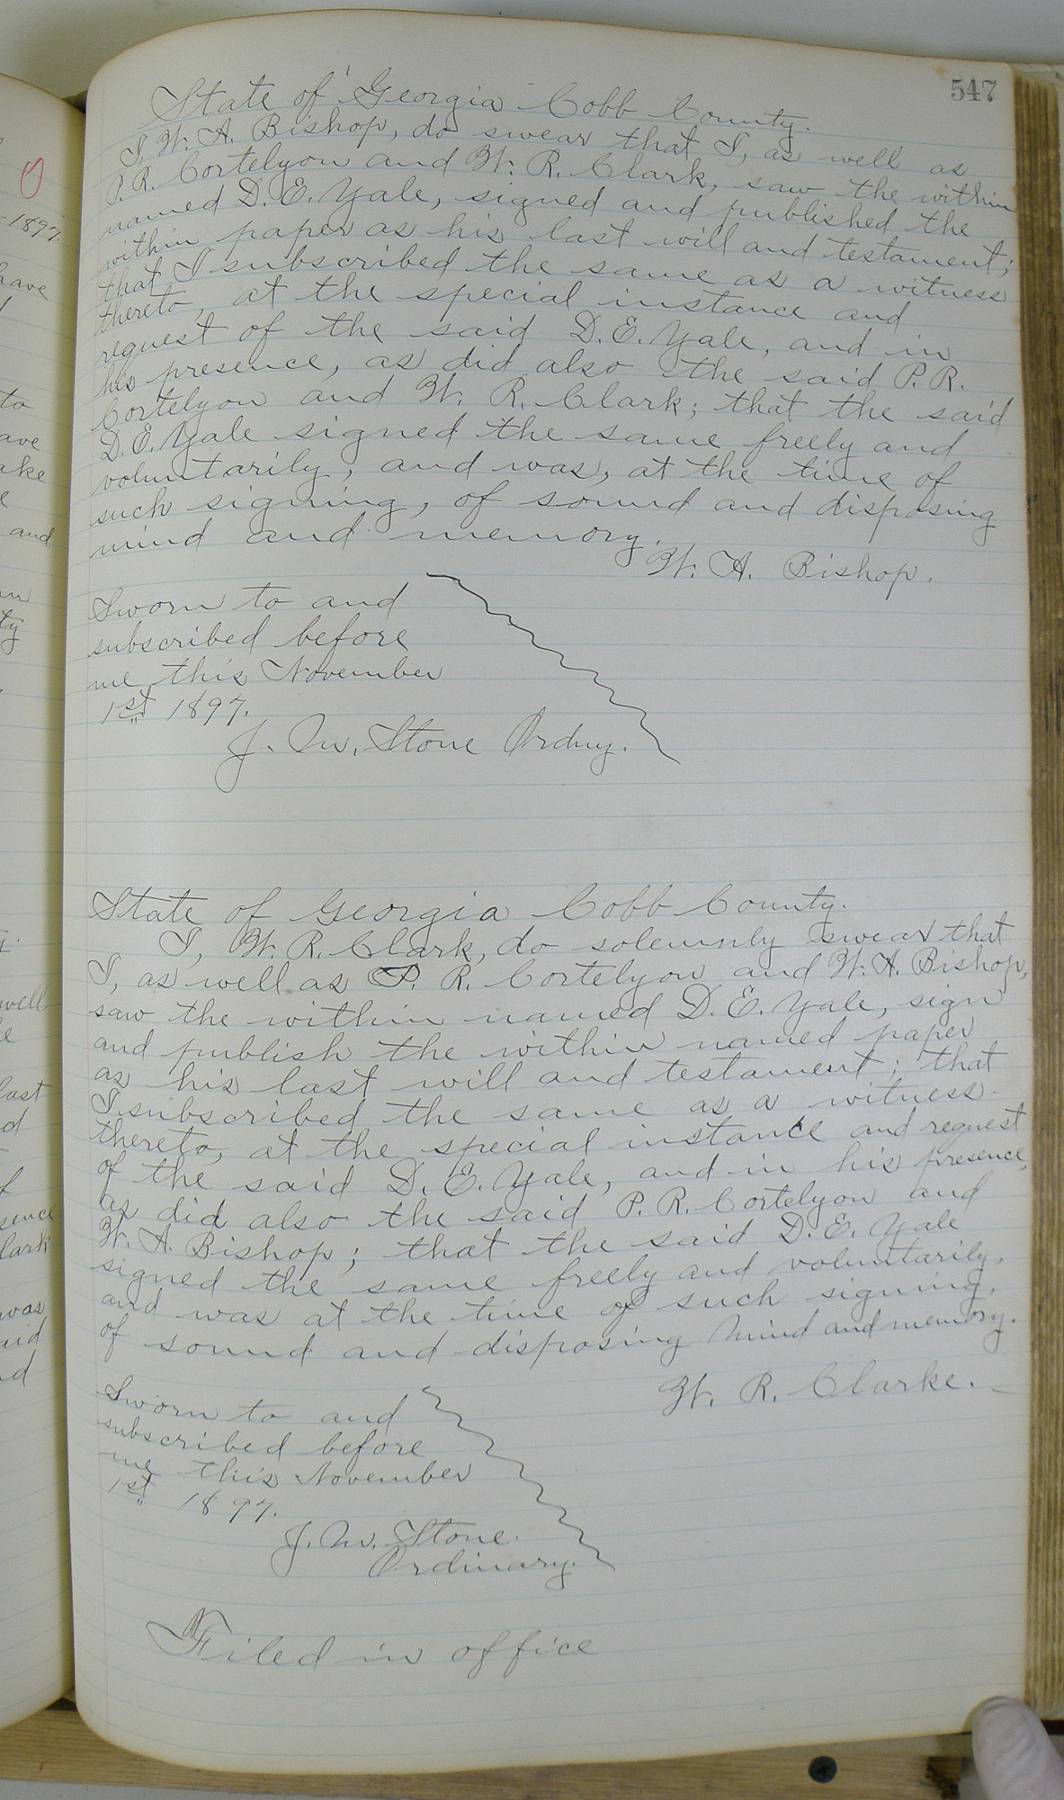 547
State of Georgia Cobb County.
I, W. A. Bishop, do swear that I, as well as
P. R. Cortelyou and W. R. Clark, saw the within
named D. E. Yale, signed and published the
within paper as his last will and testament;
that I subscribed the same as a witness
thereto, at the special instance and
request of the said D. E. Yale, and in
his presence, as did also the said P. R.
Cortelyou and W. R. Clark; that the said
D. E. Yale signed the same freely and
voluntarily, and was, at the time of
such signing, of sound and disposing
mind and memory.
W. A. Bishop.
Sworn to and
subscribed before
me this November
1st 1897.
J. M. Stone Ordny.
State of Georgia Cobb County.
I, W. R. Clark, do solemnly swear that
I, as well as P. R. Cortelyou and W. A. Bishop,
saw the within named D. E. Yale, sign
and publish the within named paper
as his last will and testament; that
I subscribed the same as a witness
thereto, at the special instance and request
of the said D. E. Yale, and in his presence,
as did also the said P. R. Cortelyou and
W. A. Bishop; that the said D. E. Yale
signed the same freely and voluntarily,
and was at the time of such signing,
of sound and disposing mind and memory.
W. R. Clarke.
Sworn to and
subscribed before
me this November
1st 1897.
J. M. Stone
Ordinary.
Filed in office